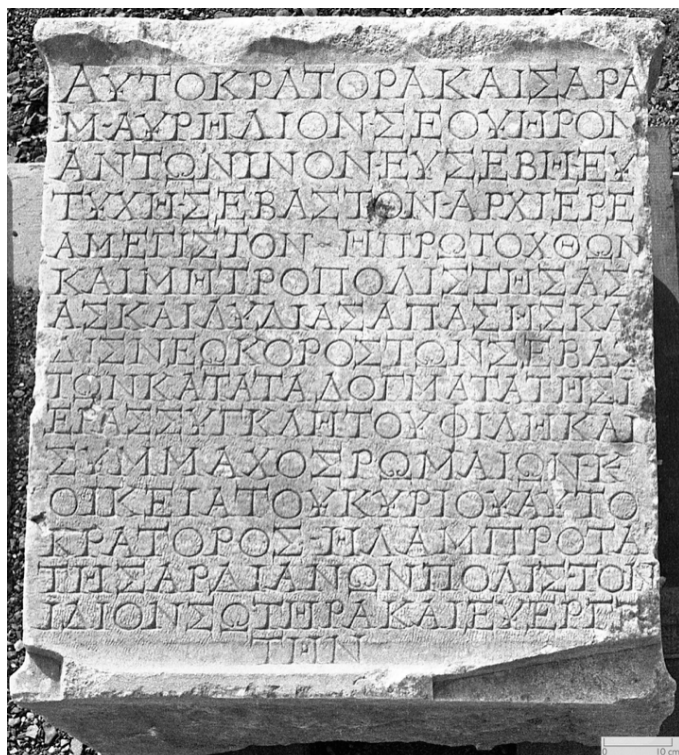 ΑΥΤΟΚΡΑΤΟΡΑΚΑΙΣΑΡΑ
Μ·ΑΥΡΗΛΙΟΝΣΕΟΥΗΡΟΝ
ΑΝΤΩΝΙΝΟΝΕΥΣΕΒΗΕΥ
ΤΥΧΗΣΕΒΑΣΤΟΝ·ΑΡΧΙΕΡΕ
ΑΜΕΓΙΣΤΟΝ ~ ΗΠΡΩΤΟΧΘΩΝ
ΚΑΙΜΗΤΡΟΠΟΛΙΣΤΗΣΑΣ
ΑΣΚΑΙΛΥΔΙΑΣΑΠΑΣΗΣΚΑ
ΔΙΣΝΕΩΚΟΡΟΣΤΩΝΣΕΒΑΣ
ΤΩΝΚΑΤΑΤΑΔΟΓΜΑΤΑΤΗΣΙ
ΕΡΑΣΣΥΓΚΛΗΤΟΥΦΙΛΗΚΑΙ
ΣΥΜΜΑΧΟΣΡΩΜΑΙΩΝΚ
ΟΙΚΕΙΑΤΟΥΚΥΡΙΟΥΑΥΤΟ
ΚΡΑΤΟΡΟΣ·ΗΛΑΜΠΡΟΤΑ
ΤΗΣΑΡΔΙΑΝΩΝΠΟΛΙΣ·ΤΟΝ
ΙΔΙΟΝΣΩΤΗΡΑΚΑΙΕΥΕΡΓΕ
ΤΗΝ
0 10 cm